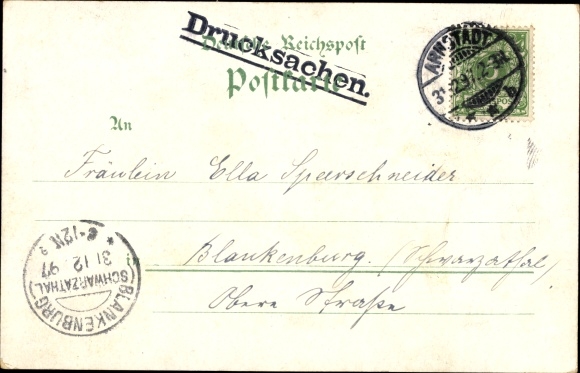 Drucksachen.
Deutsche Reichspost
Postkarte
ARNSTADT
31
b
5
An
Fräulein Ella Speerschneider
Blankenburg. (Schwarzathal)
Obere Straße
BLANKENBURG
(SCHWARZATHAL)
31 12 97